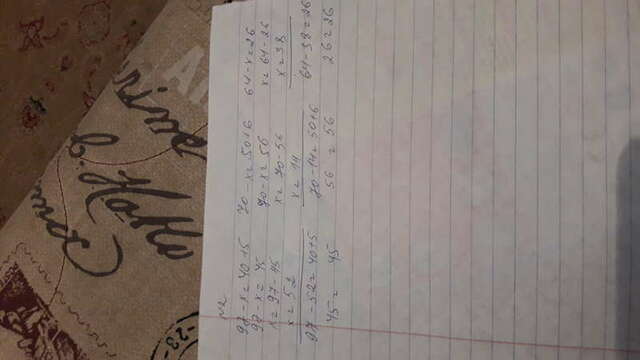 №2
97 - x = 40 + 5
97 - x = 45
x = 97 - 45
x = 52
97 - 52 = 40 + 5
45 = 45
70 - x = 50 + 6
70 - x = 56
x = 70 - 56
x = 14
70 - 14 = 50 + 6
56 = 56
64 - x = 26
x = 64 - 26
x = 38
64 - 38 = 26
26 = 26